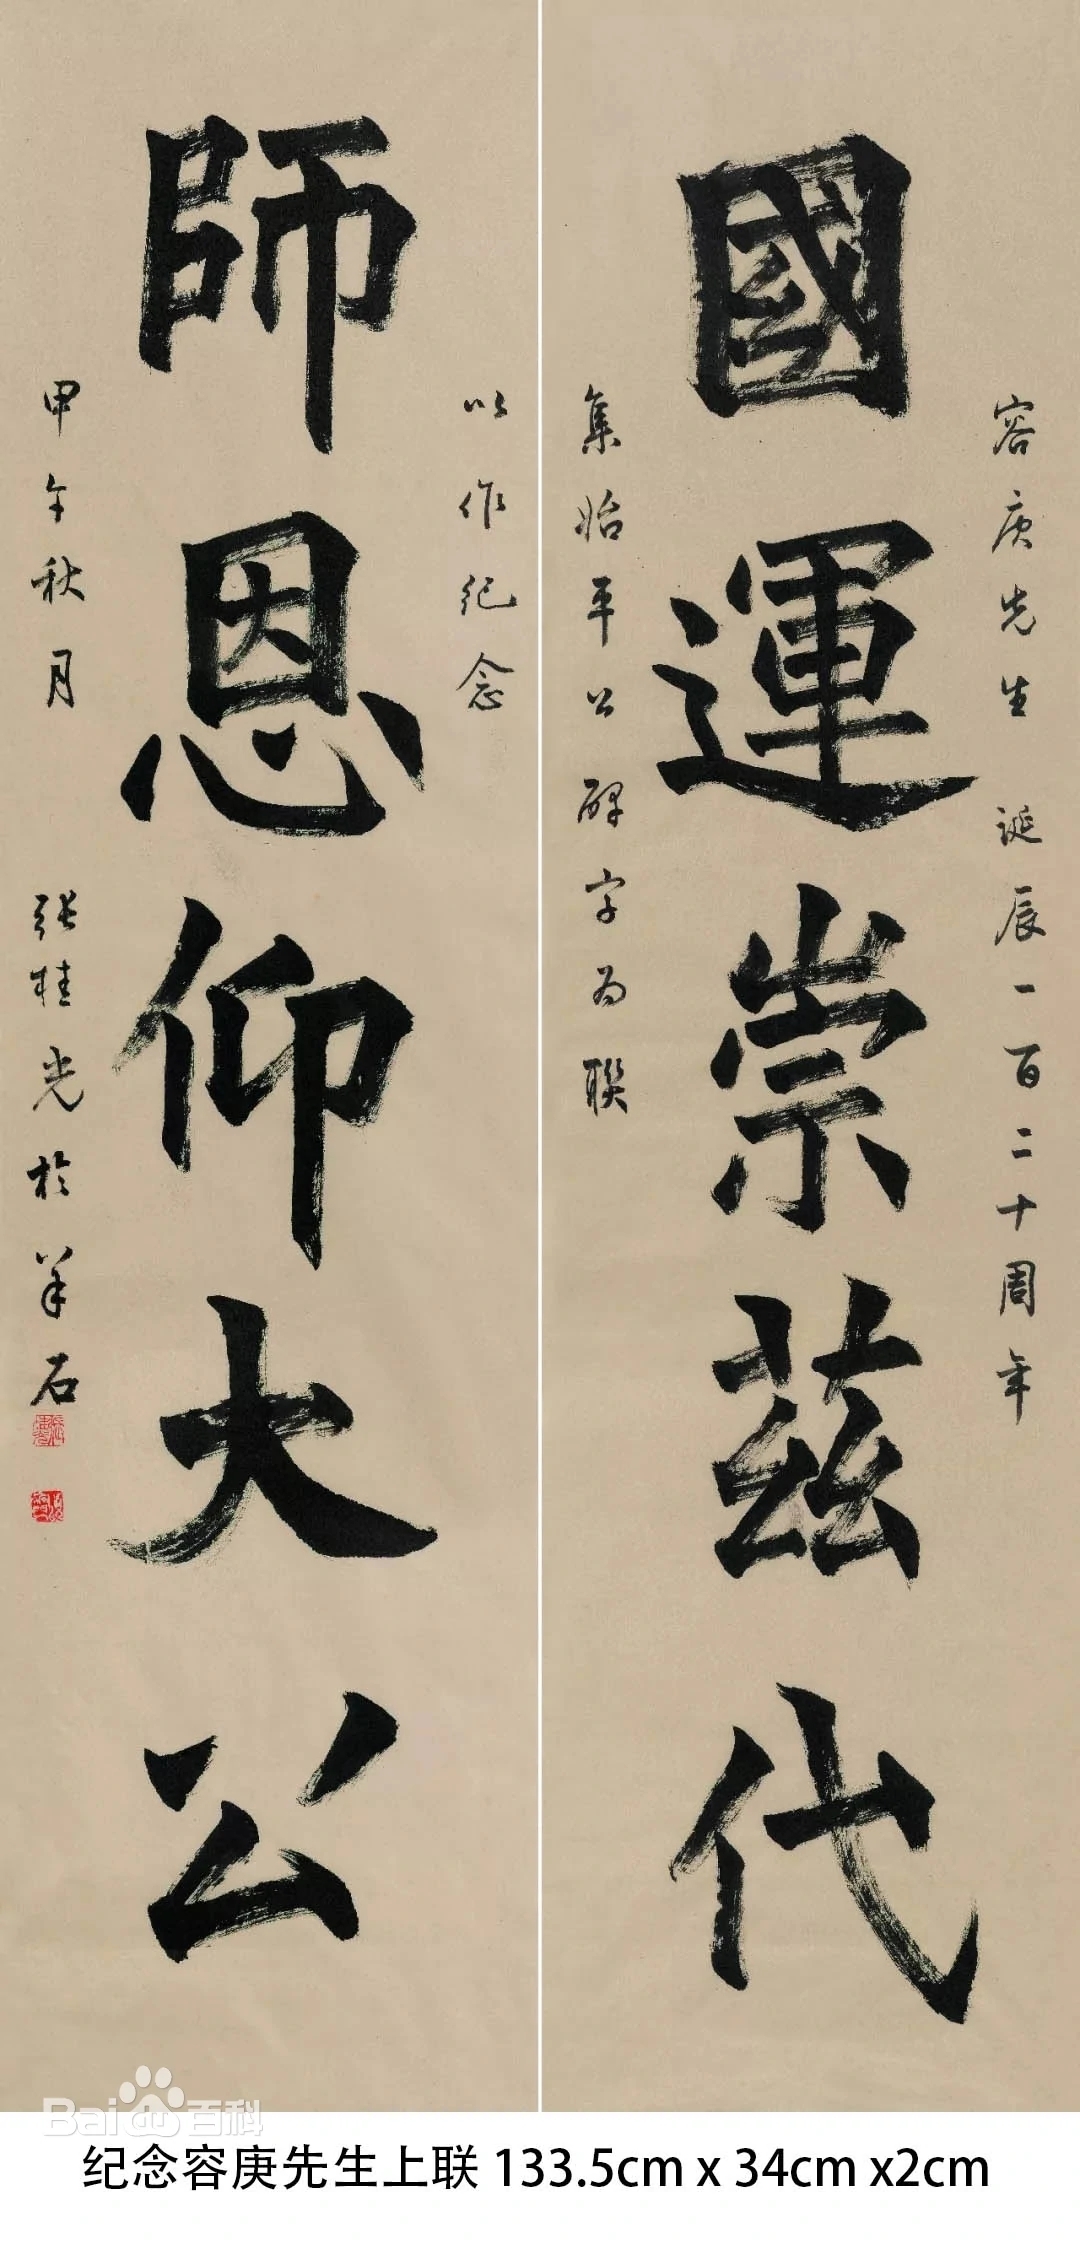 容庚先生誕辰一百二十周年
國運崇茲代
集始平公碑字為聯
以作纪念
師恩仰大公
甲午秋月 张桂光於羊石
Bai百科
纪念容庚先生上联 133.5cm x 34cm x2cm